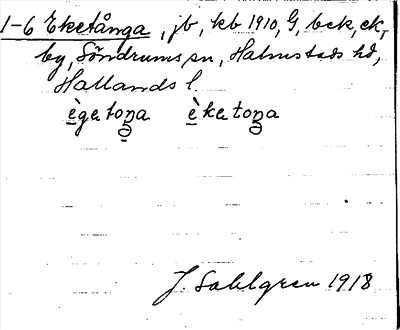 1-6 Eketånga, jb, kb 1910, G, bck, ek,
by, Söndrums sn, Halmstads hd,
Hallands l.
ègatoŋa èkatoŋa
J. Sahlgren 1918